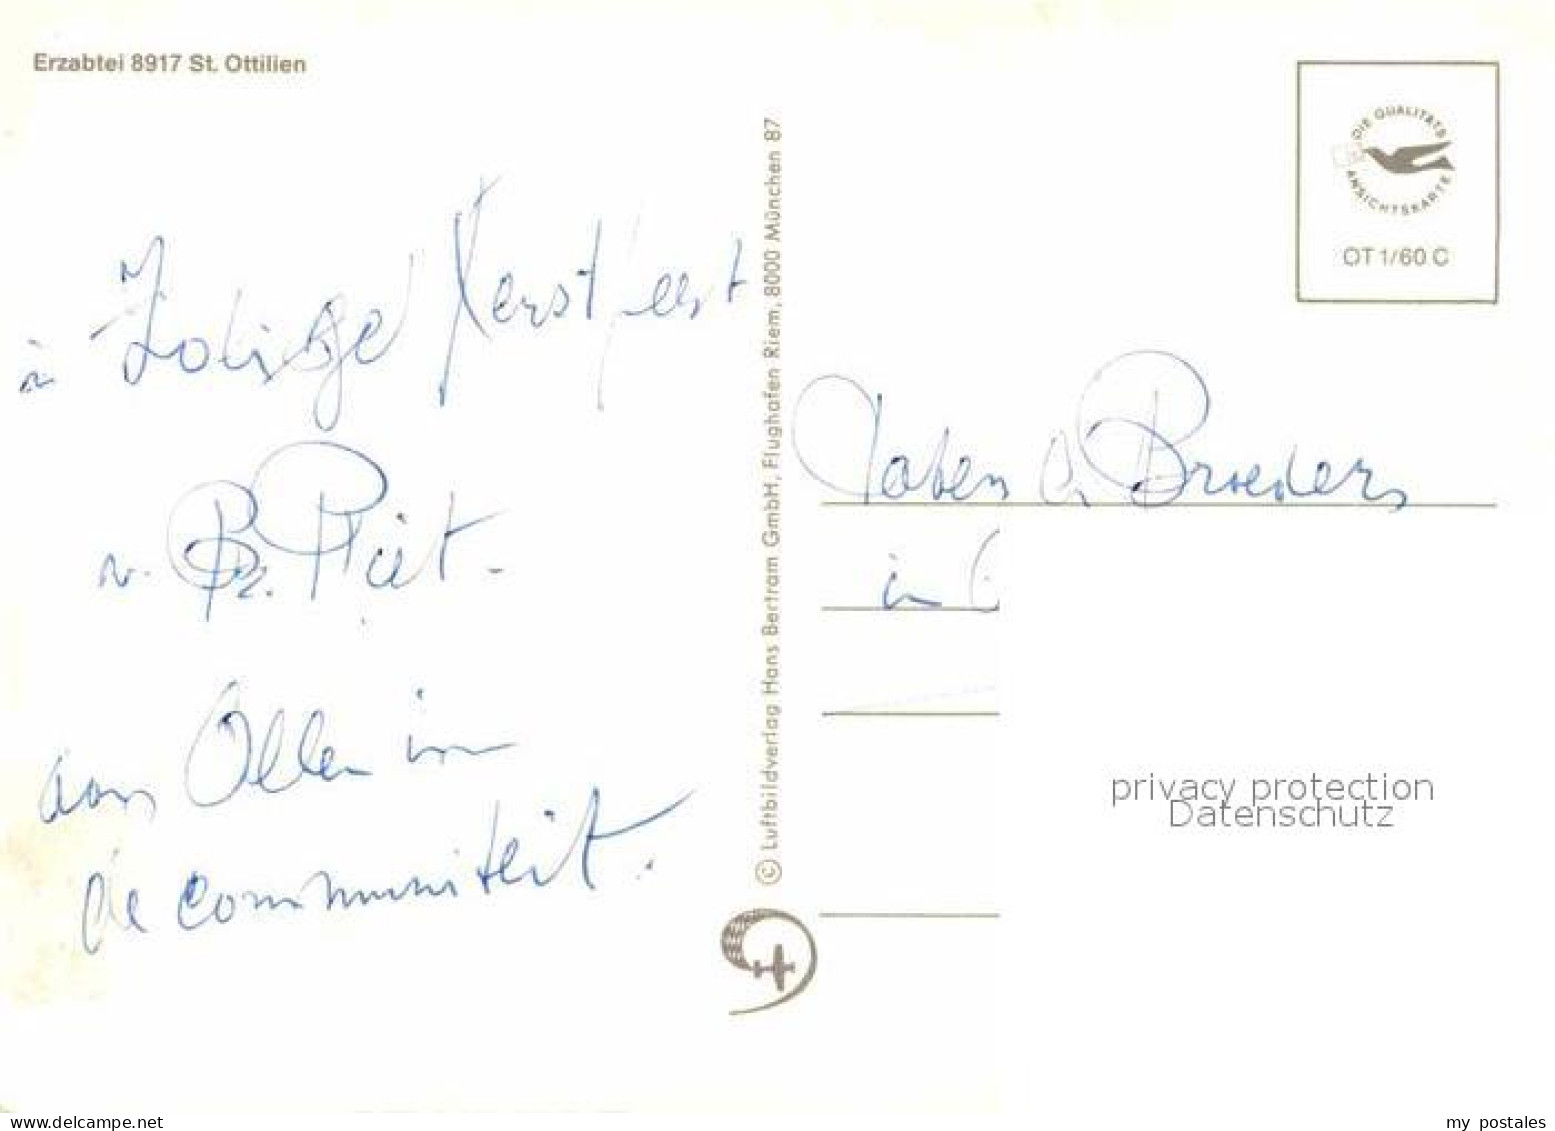 Erzabtei 8917 St. Ottilien
DIE QUALITÄTS
ANSICHTSKARTE
OT 1/60 C
Kerstfeest
v. Br. Piet.
aan Allen in
de communiteit.
© Luftbildverlag Hans Bertram GmbH, Flughafen Riem, 8000 München 87
Paters & Broeders
in
privacy protection
Datenschutz
www.delcampe.net
my postales